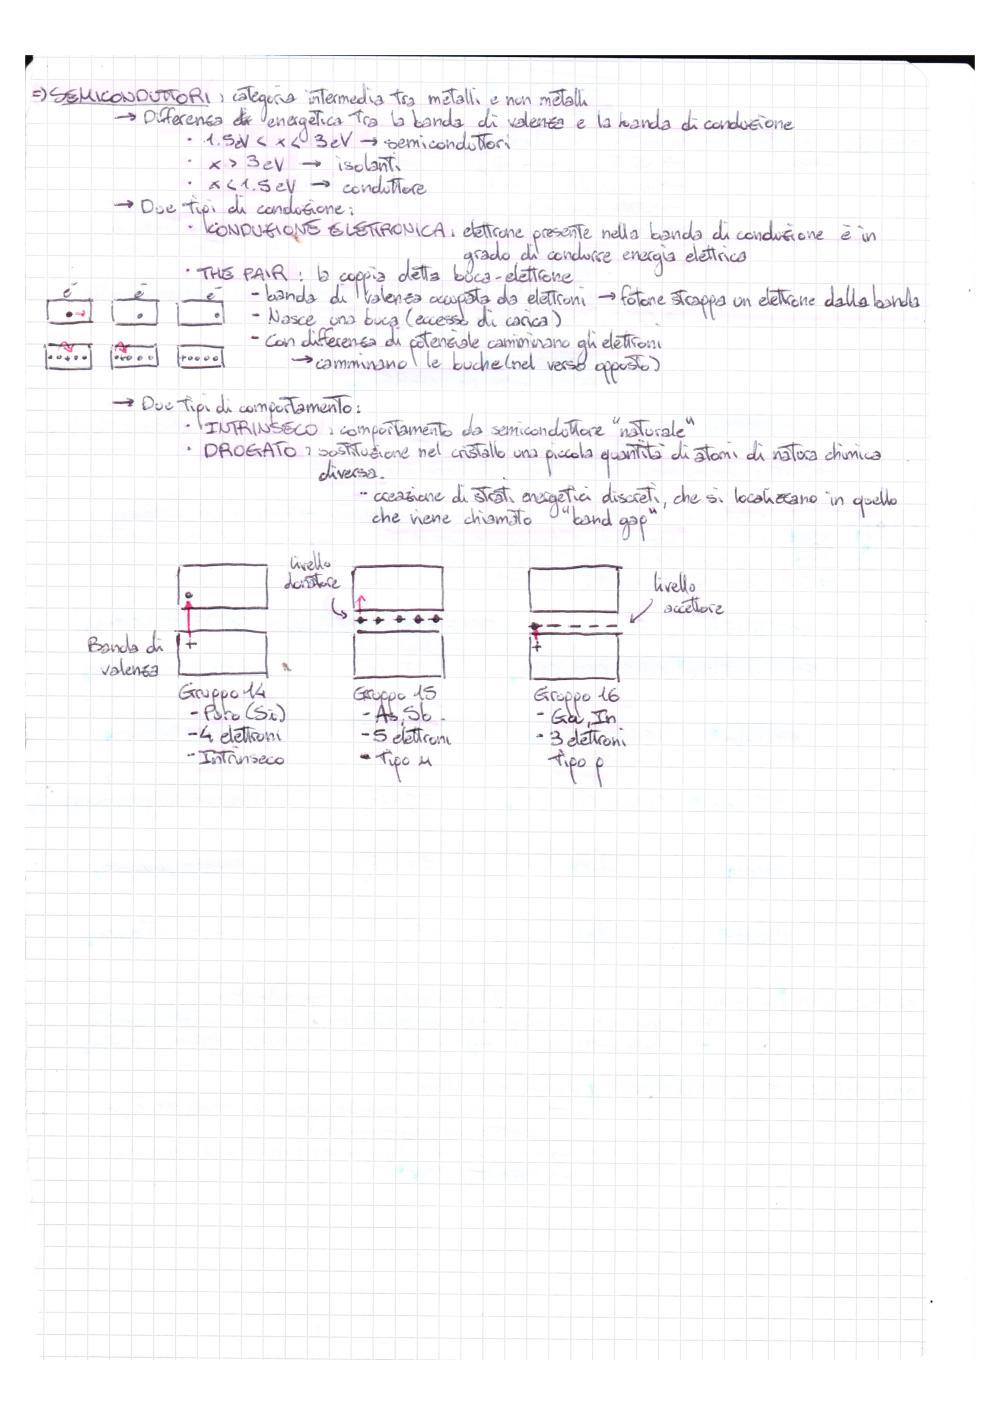 =) SEMICONDUTTORI: categoria intermedia tra metalli e non metalli
→ Differenza energetica tra la banda di valenza e la banda di conduzione
· 1.5eV < x < 3eV → semiconduttori
· x > 3eV → isolanti
· x < 1.5eV → conduttore
→ Due tipi di conduzione:
· CONDUZIONE ELETTRONICA: elettrone presente nella banda di conduzione è in
grado di condurre energia elettrica
· THE PAIR: la coppia detta buca-elettrone
- banda di valenza occupata da elettroni → fotone strappa un elettrone dalla banda
- Nasce una buca (eccesso di carica)
- Con differenza di potenziale camminano gli elettroni
→ camminano le buche (nel verso opposto)
e⁻ e⁻ e⁻
→ Due tipi di comportamento:
· INTRINSECO: comportamento da semiconduttore "naturale"
· DROGATO: sostituzione nel cristallo una piccola quantità di atomi di natura chimica
diversa.
- creazione di strati energetici discreti, che si localizzano in quello
che viene chiamato "band gap"
livello
donatore
livello
accettore
Banda di
valenza
Gruppo 14
- Puro (Si)
- 4 elettroni
- Intrinseco
Gruppo 15
- As, Sb.
- 5 elettroni
- Tipo n
Gruppo 16
- Ga, In
- 3 elettroni
Tipo p